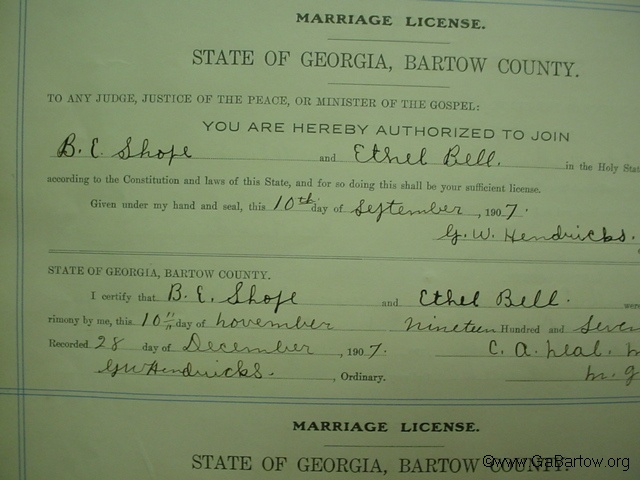 MARRIAGE LICENSE.
STATE OF GEORGIA, BARTOW COUNTY.
TO ANY JUDGE, JUSTICE OF THE PEACE, OR MINISTER OF THE GOSPEL:
YOU ARE HEREBY AUTHORIZED TO JOIN
B. E. Shope and Ethel Bell. in the Holy Stat
according to the Constitution and laws of this State, and for so doing this shall be your sufficient license.
Given under my hand and seal, this 10th day of September, 1907.
G. W. Hendricks.
STATE OF GEORGIA, BARTOW COUNTY.
I certify that B. E. Shope and Ethel Bell. were
rimony by me, this 10" day of november nineteen Hundred and Seven
Recorded 28 day of December, 1907. C. A. Neal. M
GW Hendricks. , Ordinary. M. G
MARRIAGE LICENSE.
STATE OF GEORGIA, BARTOW COUNTY.
©www.GaBartow.org